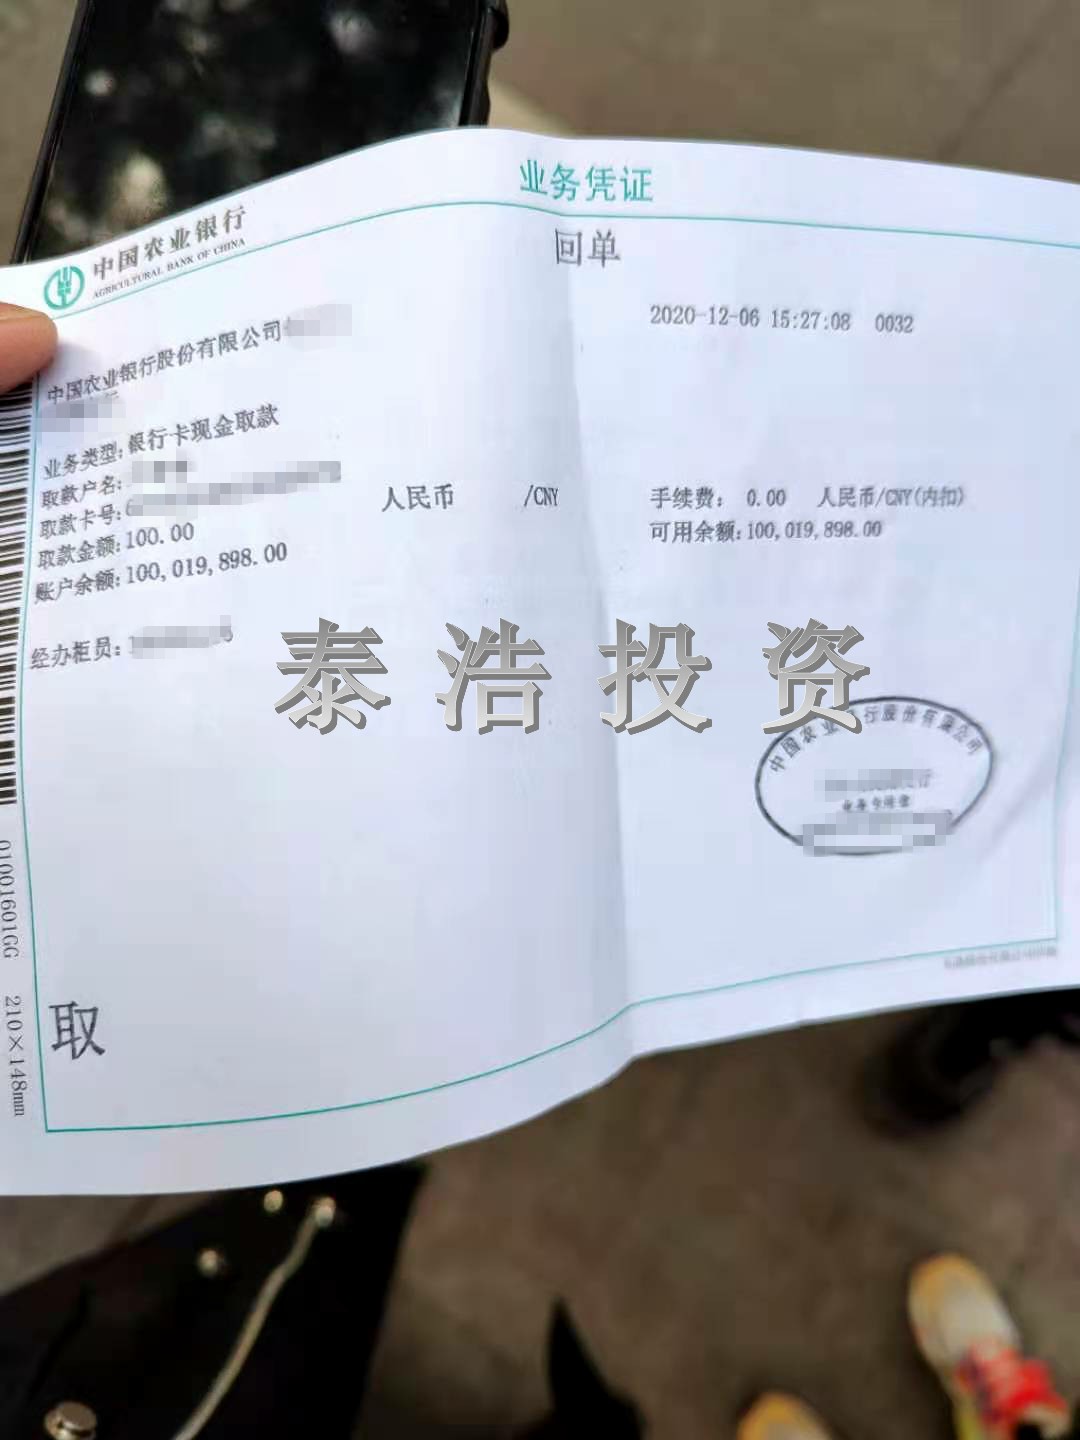 业务凭证
中国农业银行
AGRICULTURAL BANK OF CHINA
回单
2020-12-06 15:27:08 0032
中国农业银行股份有限公司
业务类型:银行卡现金取款
取款户名:
取款卡号:6
取款金额:100.00
人民币 /CNY
手续费: 0.00 人民币/CNY(内扣)
账户余额:100,019,898.00
可用余额:100,019,898.00
经办柜员:
泰浩投资
中国农业银行股份有限公司
取
01001601GG 210×148mm